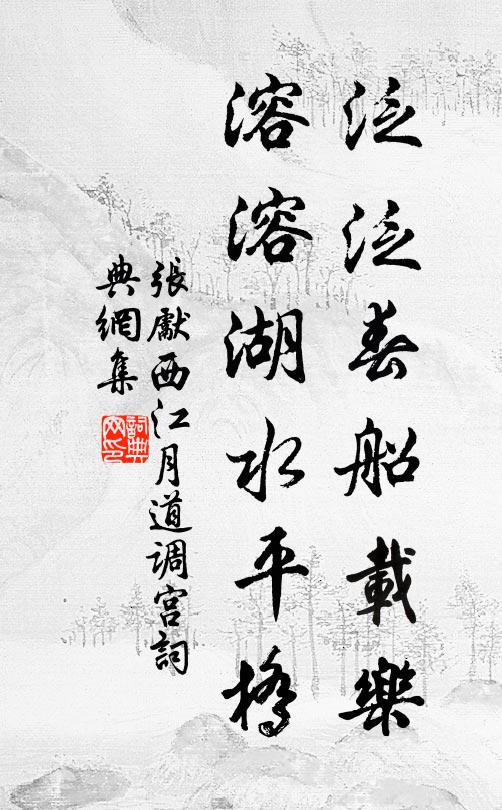 泛泛春船載樂
溶溶湖水平橋
張獻西江月道调宫詞
典網集
詞典
网印